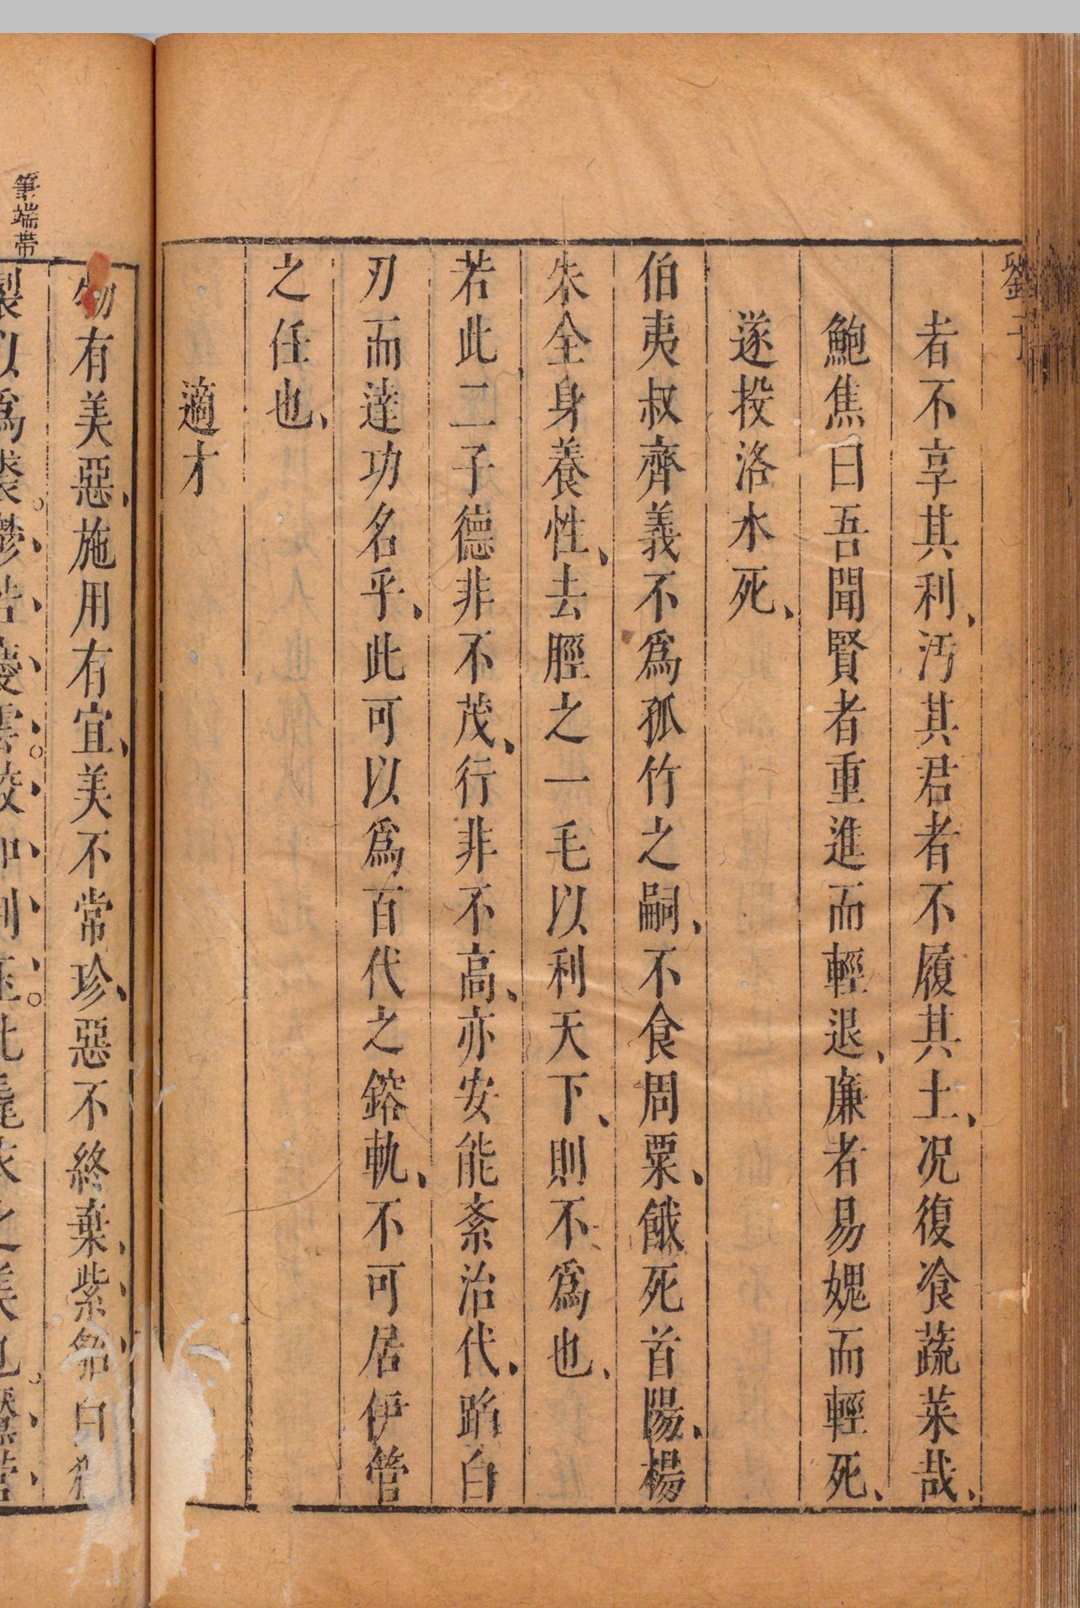 劉子
者不享其利汚其君者不履其土况復飡蔬菜哉
鮑焦曰吾聞賢者重進而輕退廉者易媿而輕死
遂投洛水死
伯夷叔齊義不爲孤竹之嗣不食周粟餓死首陽楊
朱全身養性去脛之一毛以利天下則不爲也
若此二子德非不茂行非不高亦安能紊治代蹈白
刃而達功名乎此可以爲百代之鎔軌不可居伊管
之任也
適才
物有美惡施用有宜美不常珍惡不終棄紫貂白
筆端帶
製以爲裘鬱若慶雲皎如荊玉此毳衣之美也黶菅